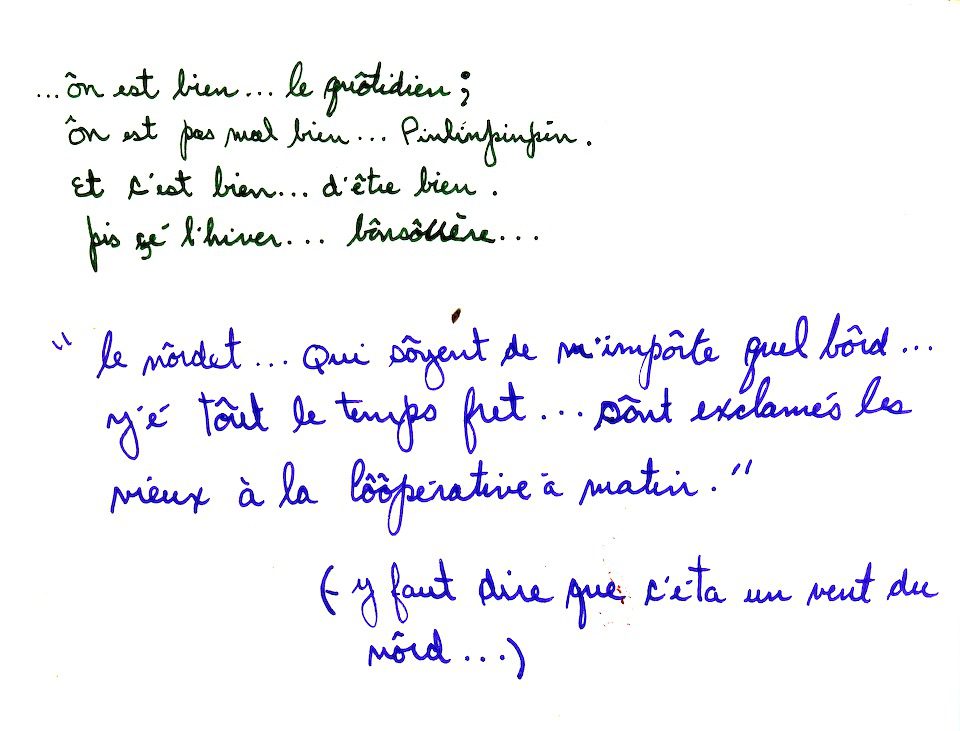 ...ôn est bien... le quôtidien;
ôn est pas mal bien... Pinlinpinpin.
Et c'est bien... d'être bien.
pis çé l'hiver... bânsôllère...
" le nôrdet... Qui sôyent de m'impôrte quel bôrd...
y'é tôut le temps fret... sônt exclamés les
vieux à la côôpérative à matin. "
(- y faut dire que c'éta un vent du
nôrd...)